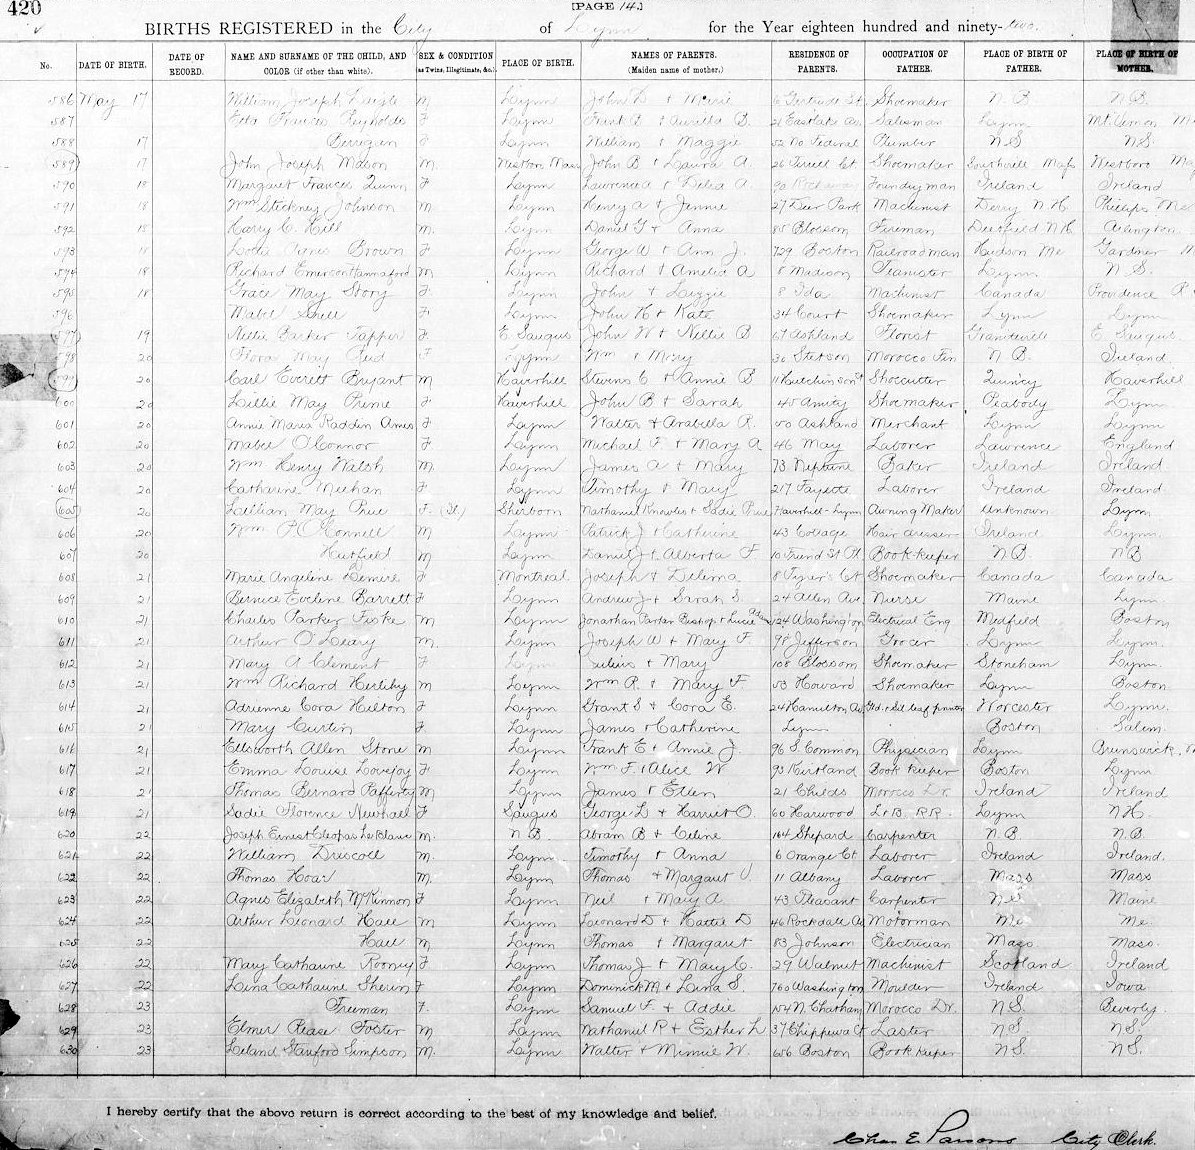 420
[PAGE 14.]
BIRTHS REGISTERED in the City of Lynn for the Year eighteen hundred and ninety-two.
No. DATE OF BIRTH. DATE OF RECORD. NAME AND SURNAME OF THE CHILD, AND COLOR (if other than white). SEX & CONDITION (as Twins, Illegitimate, &c.). PLACE OF BIRTH. NAMES OF PARENTS. (Maiden name of mother.) RESIDENCE OF PARENTS. OCCUPATION OF FATHER. PLACE OF BIRTH OF FATHER. PLACE OF BIRTH OF MOTHER.
586 May 17 William Joseph M Lynn John D + Marie 6 Gertrude St. Shoemaker N.B. N.B.
587 Etta Frances Reynolds F Lynn Frank B + Aurilla B. 21 Eastlake Av. Salesman Lynn Mt Vernon
588 17 Berrigan F Lynn William + Maggie 52 No Federal Plumber N.S. N.S.
589 17 John Joseph Mason M. Weston Mass John B + Laura A 26 Terrill Ct Shoemaker Westboro
590 18 Margaret Frances Quinn F Lynn Lawrence A + Delia A. 90 Rockaway Foundryman Ireland Ireland
591 18 Wm Stickney Johnson M. Lynn Henry A + Jennie 27 Deer Park Machinist Derry N.H. Phillips Me
592 18 Harry C. Hill M. Lynn Daniel G + Anna 85 Blossom Fireman Deerfield N.H. Arlington
593 18 Agnes Brown F Lynn George W + Ann J. 729 Boston Railroadman Hudson Me Gardner
594 18 Richard Emerson Hannaford M Lynn Richard + Amelia A 8 Madison Teamster Lynn N S.
595 18 Grace May Story F Lynn John + Lizzie 8 Ida Machinist Canada Providence R
596 Mabel Snell F Lynn John H + Kate 34 Court Shoemaker Lynn Lynn
597 19 Nellie Barker Tapper F. E Saugus John W + Nellie B 67 Ashland Florist Graniteville E. Saugus
598 20 Flora May Reid F Lynn Wm + Mary 36 Stetson Morocco Fin N B. Ireland
599 20 Carl Everett Bryant M Haverhill Stevens C + Annie B 11 Hutchinson Ct Shoecutter Quincy Haverhill
600 20 Lillie May Prime F Haverhill John B + Sarah 45 Amity Shoemaker Peabody Lynn
601 20 Annie Maria Raddin Ames F Lynn Walter + Arabella R. 50 Ashland Merchant Lynn Lynn
602 20 Mabel O'Connor F Lynn Michael F + Mary A 46 May Laborer Lawrence England
603 20 Wm Henry Walsh M. Lynn James A + Mary 73 Neptune Baker Ireland Ireland
604 20 Catharine Meehan F Lynn Timothy + Mary 217 Fayette Laborer Ireland Ireland
605 20 Lillian May Prue F. (Il.) Sherborn Nathaniel Knowles + Sadie Prue Haverhill - Lynn Awning Maker Unknown Lynn
606 20 Wm F. O'Connell M. Lynn Patrick J + Catherine 43 Cottage Hair dresser Ireland Lynn
607 20 Hatfield M Lynn Daniel J + Alberta F 10 Friend St Pl Bookkeeper N B N B
608 21 Marie Angeline Demire F Montreal Joseph + Delima 8 Tyler's Ct Shoemaker Canada Canada
609 21 Bernice Eveline Barrett F Lynn Andrew J + Sarah S 24 Allen Ave. Nurse Maine Lynn
610 21 Charles Parker Fiske M Lynn Jonathan Parker Bishop + Lucie 124 Washington Electrical Eng Medfield Boston
611 21 Arthur O'Leary M. Lynn Joseph W + Mary F. 98 Jefferson Grocer Lynn Lynn.
612 21 Mary A Clement F Lynn Julius + Mary 108 Blossom Shoemaker Stoneham Lynn.
613 21 Wm Richard Herlihy M Lynn Wm R. + Mary F. 53 Howard Shoemaker Lynn Boston
614 21 Adrienne Cora Hilton F Lynn Grant S + Cora E. 24 Hamilton Av Gld. + Sil leaf printer Worcester Lynn.
615 21 Mary Curtin F Lynn James + Catherine Lynn Boston Salem.
616 21 Ellsworth Allen Stone M Lynn Frank E + Annie J. 96 S. Common Physician Lynn Brunswick,
617 21 Emma Louise Lovejoy F Lynn Wm F. + Alice W 93 Kirtland Book keeper Boston Lynn
618 21 Thomas Bernard Rafferty M Lynn James + Ellen 21 Childs Morocco Dr. Ireland Ireland
619 21 Sadie Florence Newhall F Saugus George L + Harriet O. 60 Harwood L + B. RR. Lynn N H.
620 22 Joseph Ernest Cleopas Le Blanc M. N B. Abram B + Celine 164 Shepard Carpenter N. B N.B.
621 22 William Driscoll M. Lynn Timothy + Anna 6 Orange Ct Laborer Ireland Ireland.
622 22 Thomas Hoar M. Lynn Thomas + Margaret V. 11 Albany Laborer Mass Mass
623 22 Agnes Elizabeth McKinnon F Lynn Neil + Mary A 43 Pleasant Carpenter N S Maine
624 22 Arthur Leonard Hall M Lynn Leonard D + Hattie D 46 Rockdale Av Motorman Me. Me.
625 22 Hall M Lynn Thomas + Margaret 83 Johnson Electrician Mass. Mass.
626 22 Mary Catharine Rooney F Lynn Thomas J + Mary C. 29 Walnut Machinist Scotland Ireland
627 22 Lina Catharine Sherin F Lynn Dominick M + Lina S. 760 Washington Moulder Ireland Iowa
628 23 Freeman F. Lynn Samuel F. + Addie 154 N. Chatham Morocco Dr. N.S. Beverly.
629 23 Elmer Pease Foster M Lynn Nathaniel R + Esther L 37 Chippewa Ct Laster N S. N S.
630 23 Leland Stanford Simpson M. Lynn Walter + Minnie W. 656 Boston Book keeper N S. N S.
I hereby certify that the above return is correct according to the best of my knowledge and belief.
Chas E. Parsons City Clerk.